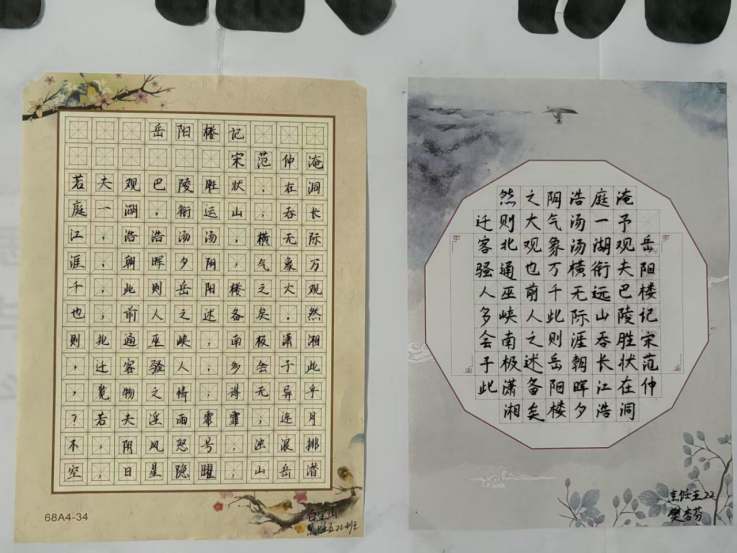 岳阳楼记
宋范仲淹
若夫观巴陵胜状，在洞
庭一湖。衔远山，吞长
江，浩浩汤汤，横无际
涯，朝晖夕阴，气象万
千，此则岳阳楼之大观
也，前人之述备矣，然
则北通巫峡，南极潇湘
，迁客骚人，多会于此
，览物之情，得无异乎
？若夫淫雨霏霏，连月
不，阴风怒号，浊浪排
空，日星隐曜，山岳潜
68A4-34
岳阳楼记宋范仲
淹予观夫巴陵胜状在洞
庭一湖衔远山吞长江浩
浩汤汤横无际涯朝晖夕
阴气象万千此则岳阳楼
之大观也前人之述备矣
然则北通巫峡南极潇湘
迁客骚人多会于此
樊杏芬